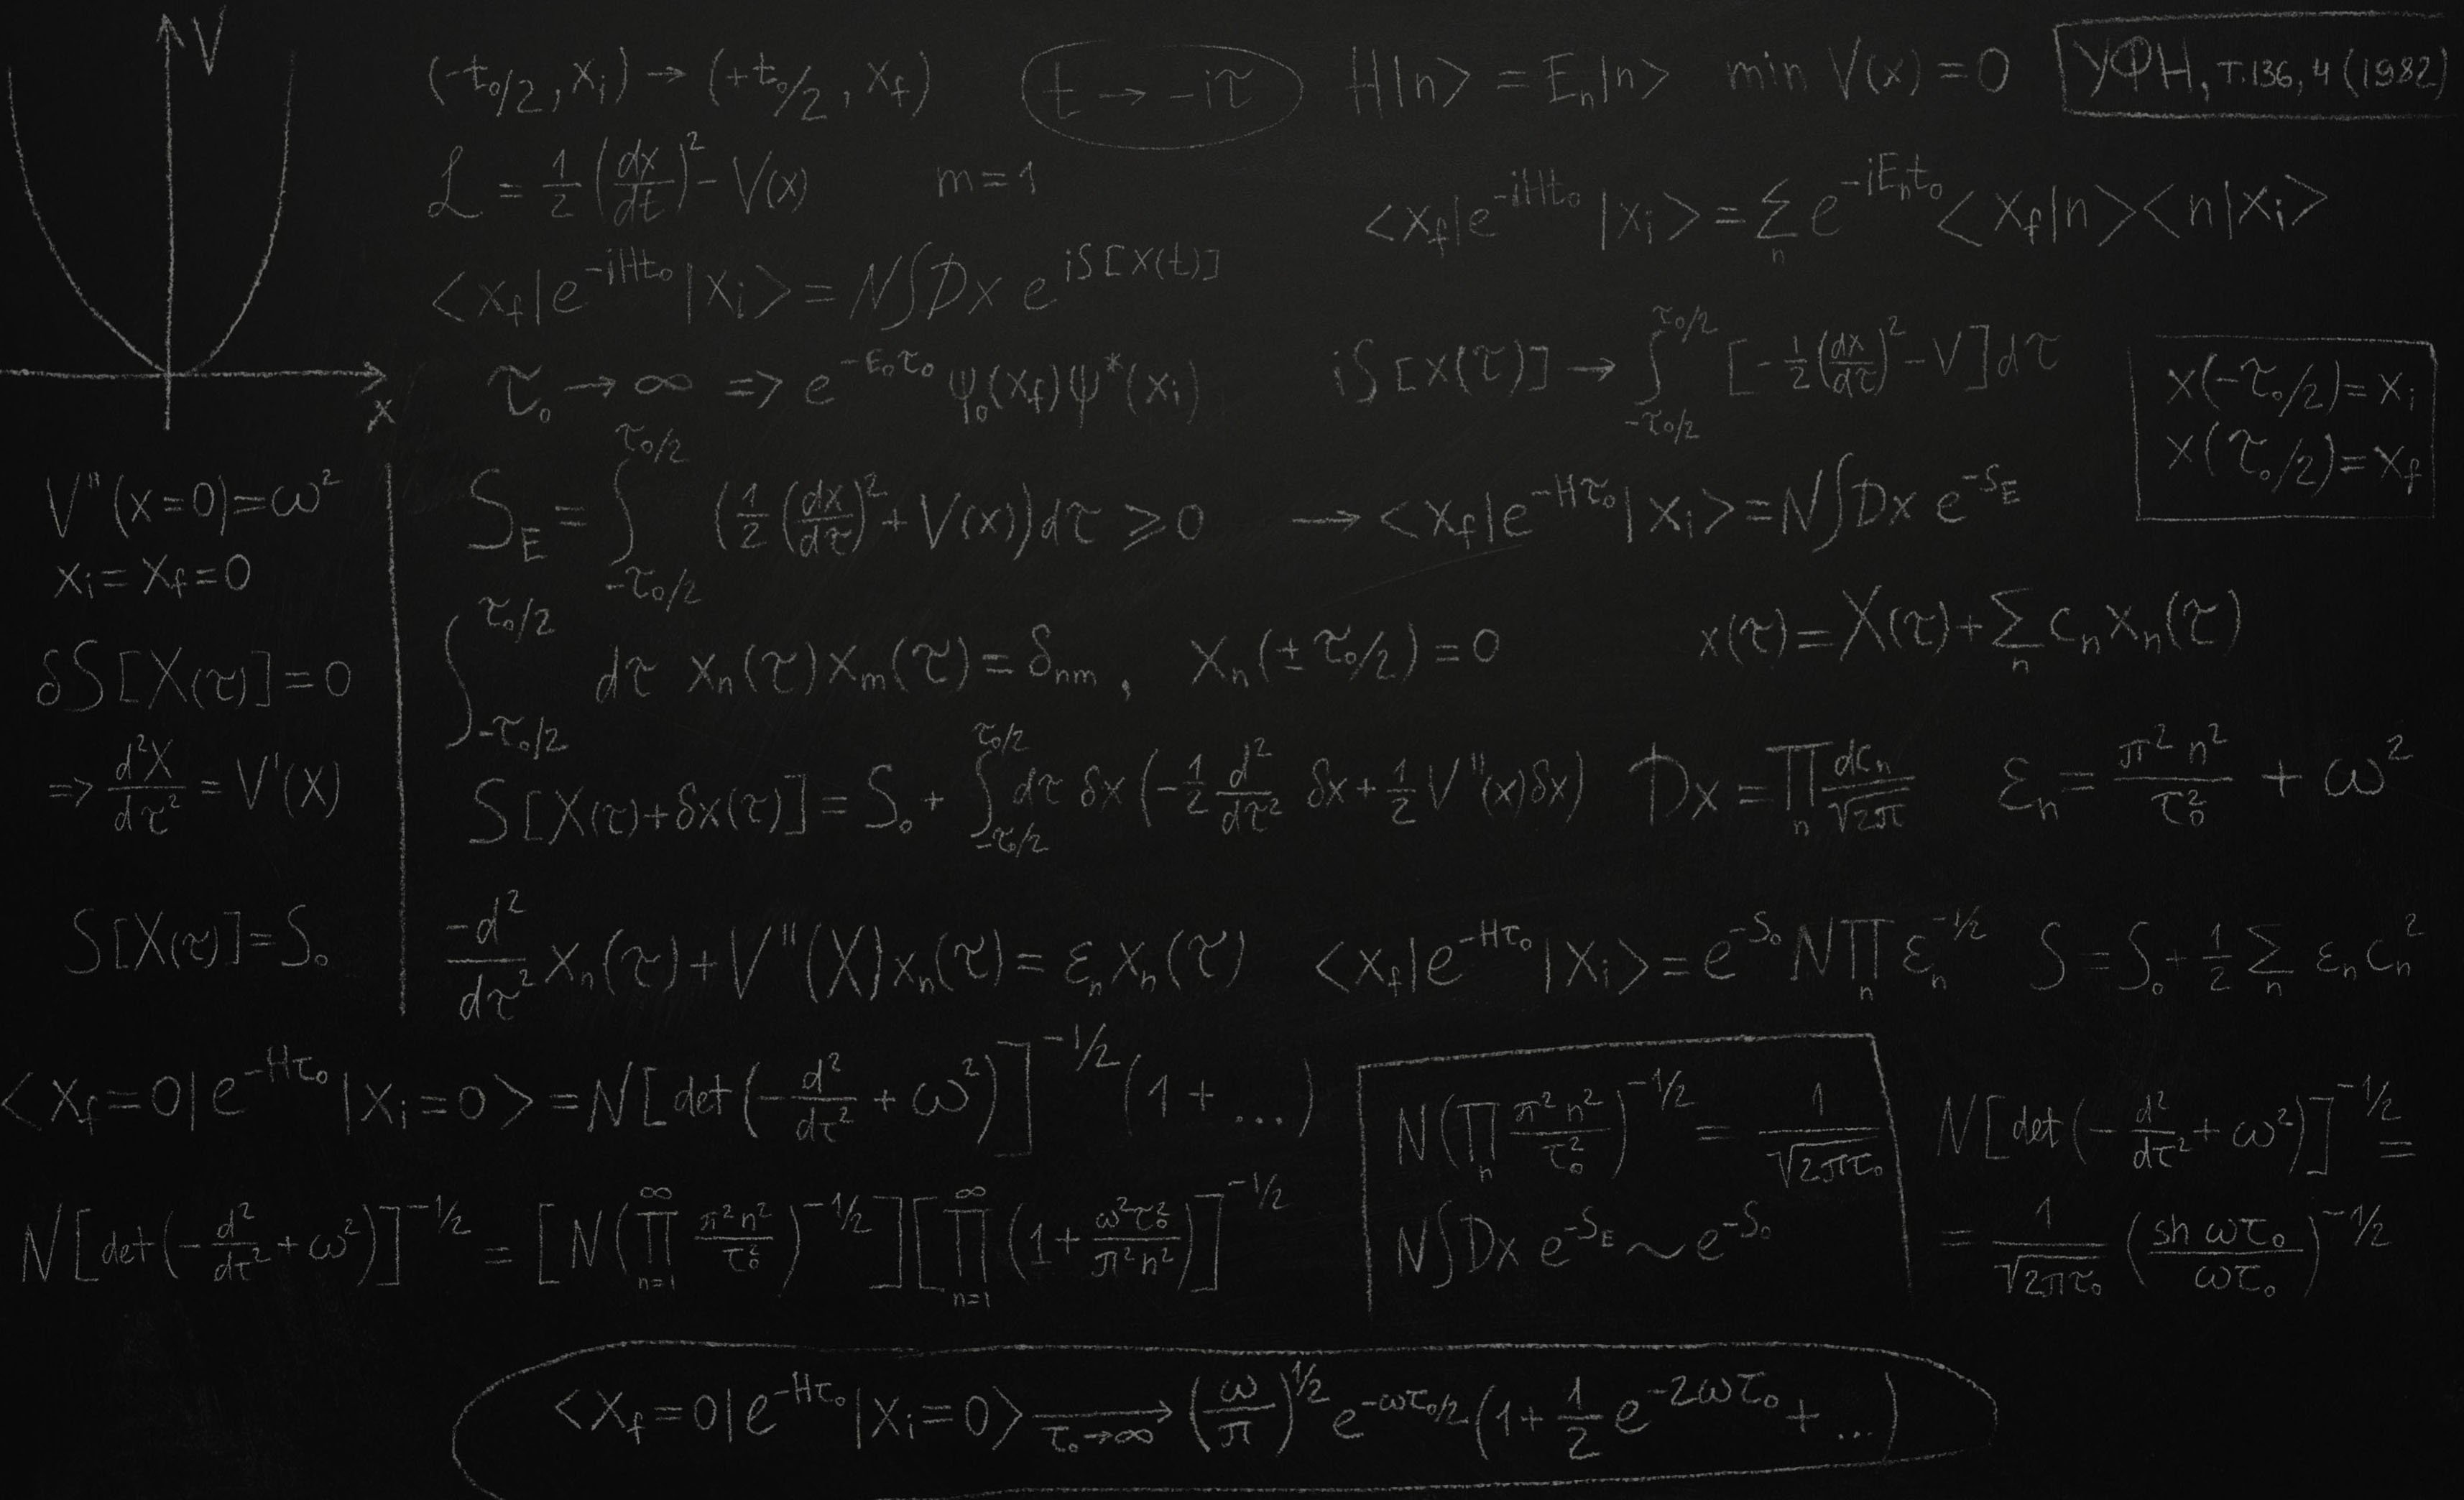 V
(-t₀/2, xᵢ) → (+t₀/2, x_f)
t → -iτ
H|n> = Eₙ|n>
min V(x) = 0
УФН, т.136, 4 (1982)
ℒ = 1/2 (dx/dt)² - V(x)
m = 1
<x_f|e^{-iHt₀}|xᵢ> = Σ_n e^{-iEₙt₀} <x_f|n><n|xᵢ>
<x_f|e^{-iHt₀}|xᵢ> = N∫Dx e^{iS[x(t)]}
x
τ₀ → ∞ => e^{-E₀τ₀} ψ₀(x_f)ψ*(xᵢ)
iS[x(τ)] → ∫_{-τ₀/2}^{τ₀/2} [-1/2 (dx/dτ)² - V]dτ
x(-τ₀/2) = xᵢ
x(τ₀/2) = x_f
V''(x=0) = ω²
xᵢ = x_f = 0
δS[X(τ)] = 0
=> d²X/dτ² = V'(X)
S[X(τ)] = S₀
S_E = ∫_{-τ₀/2}^{τ₀/2} (1/2 (dx/dτ)² + V(x))dτ ⩾ 0 → <x_f|e^{-Hτ₀}|xᵢ> = N∫Dx e^{-S_E}
∫_{-τ₀/2}^{τ₀/2} dτ xₙ(τ)xₘ(τ) = δₙₘ, xₙ(±τ₀/2) = 0
x(τ) = X(τ) + Σ_n cₙxₙ(τ)
S[X(τ)+δx(τ)] = S₀ + ∫_{-τ₀/2}^{τ₀/2} dτ δx (-1/2 d²/dτ² δx + 1/2 V''(x)δx)
Dx = ∏_n dcₙ/√2π
εₙ = π²n²/τ₀² + ω²
-d²/dτ² xₙ(τ) + V''(X)xₙ(τ) = εₙxₙ(τ)
<x_f|e^{-Hτ₀}|xᵢ> = e^{-S₀} N∏_n εₙ^{-1/2}
S = S₀ + 1/2 Σ_n εₙcₙ²
<x_f=0|e^{-Hτ₀}|xᵢ=0> = N[det(-d²/dτ² + ω²)]^{-1/2} (1+...)
N[det(-d²/dτ² + ω²)]^{-1/2} = [N(∏_{n=1}^{∞} π²n²/τ₀²)^{-1/2}][∏_{n=1}^{∞} (1+ω²τ₀²/π²n²)]^{-1/2}
N(∏_n π²n²/τ₀²)^{-1/2} = 1/√2πτ₀
N∫Dx e^{-S_E} ~ e^{-S₀}
N[det(-d²/dτ² + ω²)]^{-1/2} =
= 1/√2πτ₀ (sh ωτ₀/ωτ₀)^{-1/2}
<x_f=0|e^{-Hτ₀}|xᵢ=0> →_{τ₀→∞} (ω/π)^{1/2} e^{-ωτ₀/2}(1+1/2 e^{-2ωτ₀}+...)